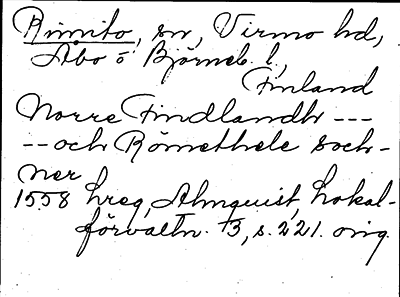 Rimito, sn, Virmo hd,
Åbo o Björneb. l,
Finland
Norre Findlandh ---
-- och Römethele soch-
ner
1558 hreg, Almquist, Lokal-
förvaltn. I 3, s. 221. orig.